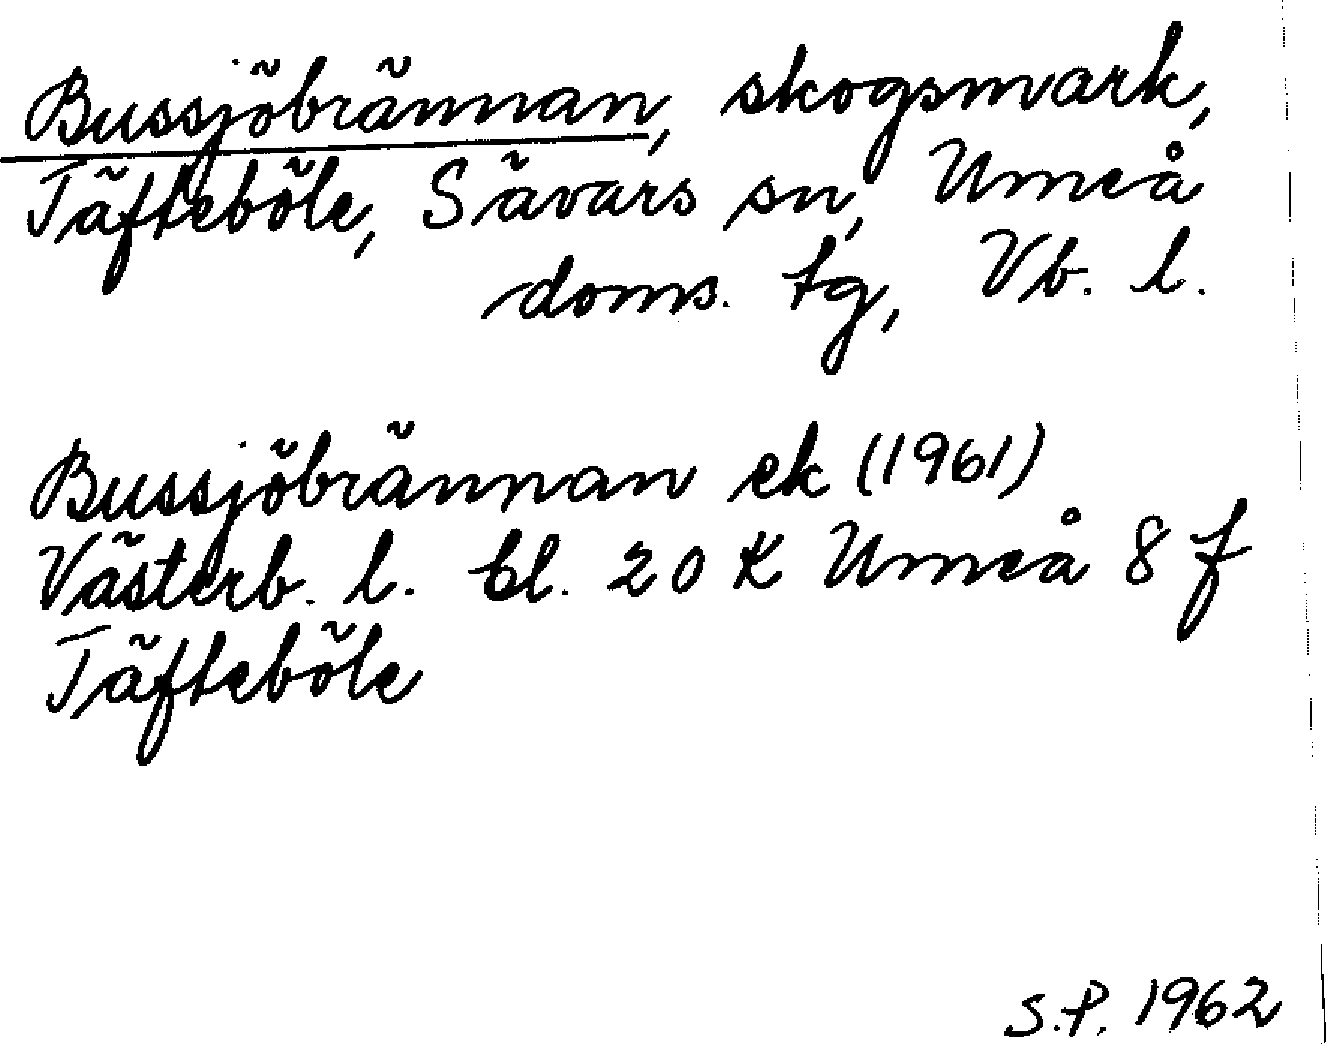 Bussjöbrännan, skogsmark,
Täfteböle, Sävars sn, Umeå
doms. tg, Vb. l.
Bussjöbrännan ek (1961)
Västerb. l. bl. 20 K Umeå 8 f
Täfteböle
S.P. 1962